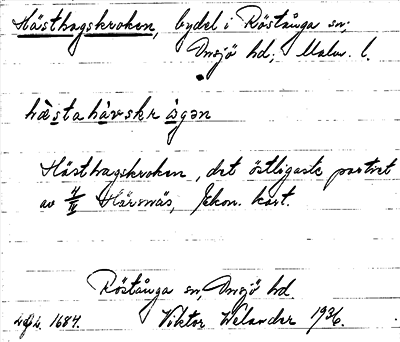 Hästhagskroken, bydel i Röstånga sn;
Onsjö hd; Malm. l.
hästahávskr ågən
Hästhagskroken, det östligaste partiet
av 4/IV Härsnäs, Ekon. kart.
Röstånga sn, Onsjö hd.
1684. Viktor Welander 1936.